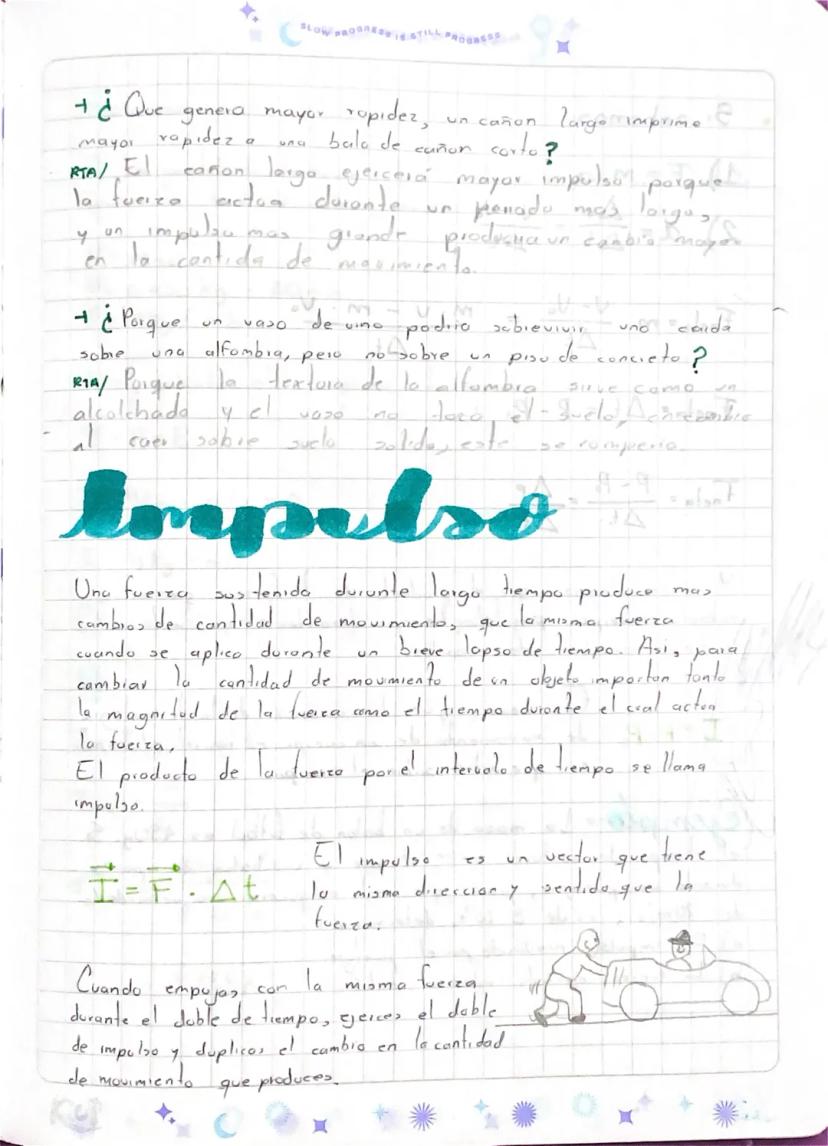 SLOW PROGRESS IS STILL PROGRESS
→ ¿ Que genera mayor rapidez, un cañon largo imprime
mayor rapidez a una bala de cañon corto?
RTA/ El cañon largo ejercerá mayor impulso porque
la fuerza actua durante un periodo mas largo,
y un impulso mas grande producira un cambio mayor
en la cantida de movimiento.
→ ¿Porque un vaso de vino podria sobrevivir una caida
sobre una alfombra, pero no sobre un piso de concreto?
RTA/ Porque la textura de la alfombra sirve como un
alcolchado y el vaso no toca el suelo, en cambio
al caer sobre suelo solido, este se romperia.
Impulso
Una fuerza sostenida durante largo tiempo produce mas
cambios de cantidad de movimiento, que la misma fuerza
cuando se aplica durante un breve lapso de tiempo. Asi, para
cambiar la cantidad de movimiento de un objeto importan tanto
la magnitud de la fuerza como el tiempo durante el cual actua
la fuerza.
El producto de la fuerza por el intervalo de tiempo se llama
impulso.
I⃗ = F⃗ . Δt
El impulso es un vector que tiene
la misma direccion y sentido que la
fuerza.
Cuando empujas con la misma fuerza
durante el doble de tiempo, ejerces el doble
de impulso y duplicas el cambio en la cantidad
de movimiento que produces.